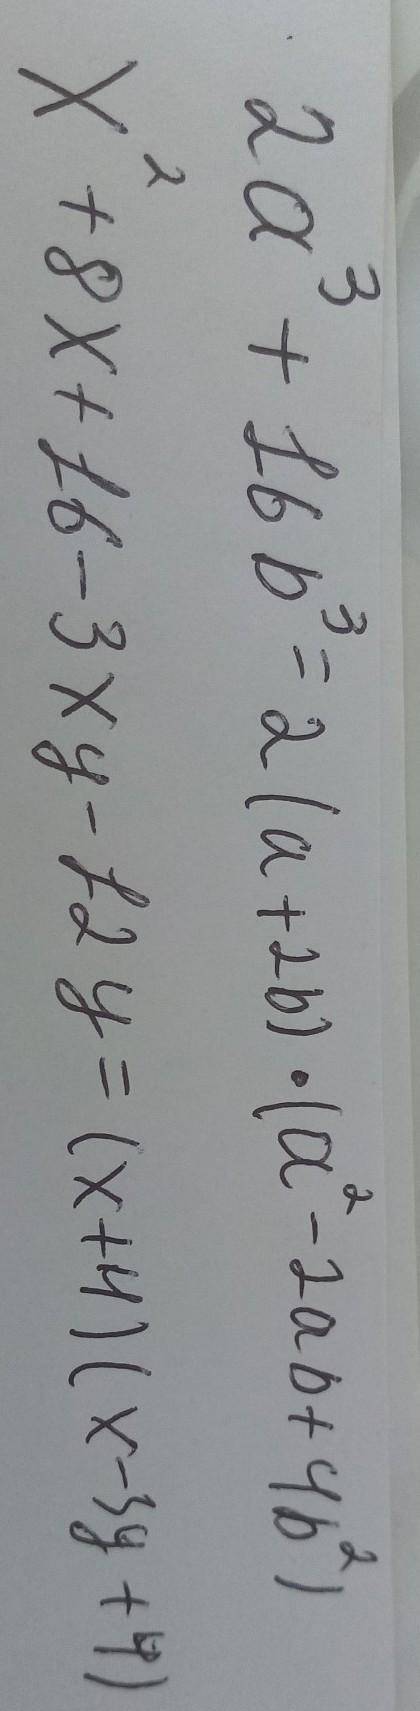 2a³ + 16b³ = 2(a+2b)·(a² - 2ab + 4b²)
x² + 8x + 16 - 3xy - 12y = (x+4)(x-3y+4)